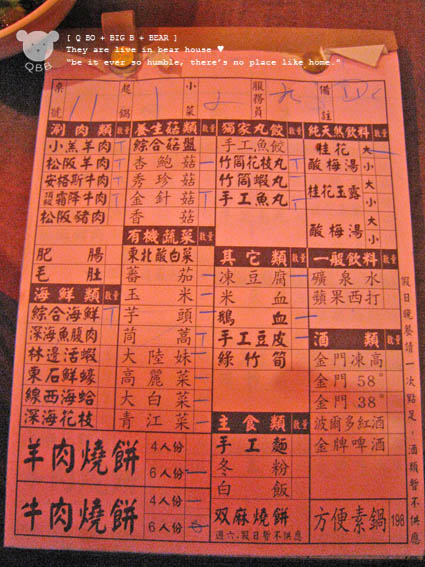 [ Q BO + BIG B + BEAR ]
They are live in bear house ♥
"be it ever so humble, there's no place like home."
QBB.
桌號 11 起鍋 1 小菜 2 服務員 備註
涮肉類 數量
小羔羊肉
松阪羊肉
安格斯牛肉
頂級霜降牛肉
松阪豬肉
肥腸
毛肚
海鮮類 數量
綜合海鮮
深海魚腹肉
林邊活蝦
東石鮮蠔
線西海蛤
深海花枝
養生菇類 數量
綜合菇盤
杏鮑菇
秀珍菇
金針菇
香菇
有機蔬菜 數量
東北酸白菜
蕃茄
玉米
芋頭
茼蒿
大陸妹
高麗菜
大白菜
青江菜
獨家丸餃 數量
手工魚餃
竹筒花枝丸
竹筒蝦丸
手工魚丸
其它類 數量
凍豆腐
米血
鵝血
手工豆皮
綠竹筍
主食類 數量
手工麵
冬粉
白飯
双麻燒餅
週六、假日暫不供應
純天然飲料 數量
桂花酸梅湯 大 小
桂花玉露酸梅湯 大 小 大 小
一般飲料 數量
礦泉水
蘋果西打
酒類 數量
金門凍高
金門58°
金門38°
波爾多紅酒
金牌啤酒
方便素鍋 198
羊肉燒餅 4人份 6人份
牛肉燒餅 4人份 6人份
假日晚餐請一次點足,酒類暫不供應